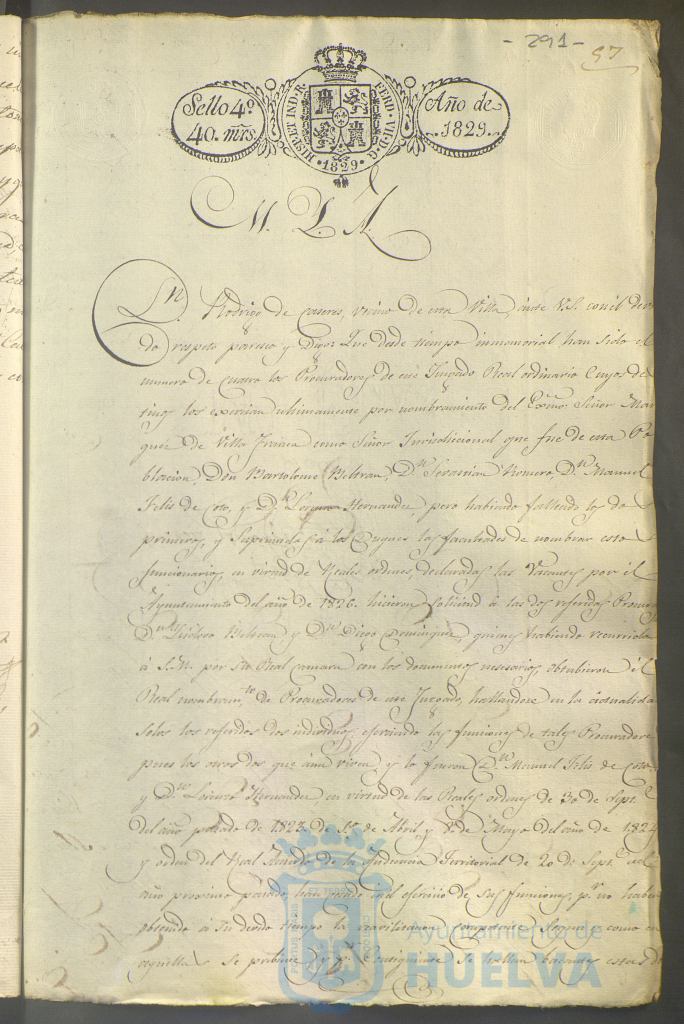 - 291 -
57
Sello 4º
40. mrs.
HISP. ET IND. R. FERD. VII. D. G. 1829.
Año de
1829.
M. Y. A.
Dn. Rodrigo de Caseres, vecino de esta Villa, ánte V.S. con él devi
do respeto paresco y Digo: Que desde tiempo inmemorial han sido él
numero de Cuatro los Procuradores de este Jusgado Real ordinario Cuyos des
tinos los exersian ultimamente por nombramiento del Exmo. Señor Mar
ques de Villa Franca como Señor Jurisdiccional que fue de esta Po
blacion, Don Bartolome Beltran, Dn. Sevastian Romero, Dn. Manuel
Felis de Coto, y Dn. Lorenzo Hernandez, pero habiendo fallecido los dos
primeros, y Suprimidas á los Duques las facultades de nombrar estos
funcionarios, en virtud de Reales ordenes, declaradas las Vacantes por él
Ayuntamiento del año de 1826. hicieron Solicitud á las dos referidas Procuras
Dn. Isidoro Beltran y Dn. Diego Dominguez, quienes habiendo recurrido
á S.M. por su Real Camara con los documentos nesesarios, obtubieron él
Real nombramto. de Procuradores de este Jusgado, hallandose en la áctualidad
Solos los referidos dos individuos, ejersiendo las funciones de tales Procuradores
pues los otros dos que áun viven, y lo fueron Dn. Manuel Felis de Coto
y Dn. Lorenzo Hernandez, en virtud de las Reales ordenes de 30 de Sept.
del año pasado de 1823. de 1º. de Abril, y 8. de Mayo del año de 1824
y orden del Real Acuerdo de la Audiencia Territorial de 20 de Sept.e del
año proximo pasado, han sesado en el ejersicio de Sus funciones, pr. no haber
obtenido á Su devido tiempo la reavilitacion Competente Segun, como en
aquellas Se previene, y pr. Consiguiente Se hallan Vacantes estas dos
Ayuntamiento de
HUELVA